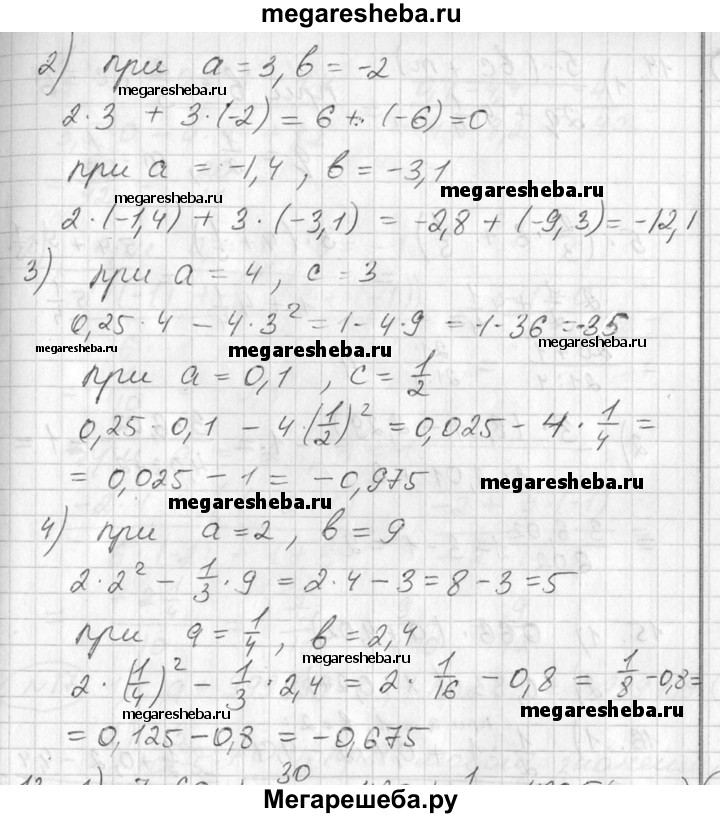 megaresheba.ru
2) при a = 3, b = -2
megaresheba.ru
2 · 3 + 3 · (-2) = 6 + (-6) = 0
при a = -1,4 , b = -3,1
megaresheba.ru megaresheba.ru
2 · (-1,4) + 3 · (-3,1) = -2,8 + (-9,3) = -12,1
3) при a = 4 , c = 3
0,25 · 4 - 4 · 3² = 1 - 4 · 9 = 1 - 36 = -35
megaresheba.ru megaresheba.ru megaresheba.ru
при a = 0,1 , c = 1/2
0,25 · 0,1 - 4 · (1/2)² = 0,025 - 4 · 1/4 =
= 0,025 - 1 = -0,975 megaresheba.ru
megaresheba.ru
4) при a = 2 , b = 9
2 · 2² - 1/3 · 9 = 2 · 4 - 3 = 8 - 3 = 5
при a = 1/4 , b = 2,4
megaresheba.ru
2 · (1/4)² - 1/3 · 2,4 = 2 · 1/16 - 0,8 = 1/8 - 0,8 =
megaresheba.ru megaresheba.ru
= 0,125 - 0,8 = -0,675
30
Мегарешеба.ру